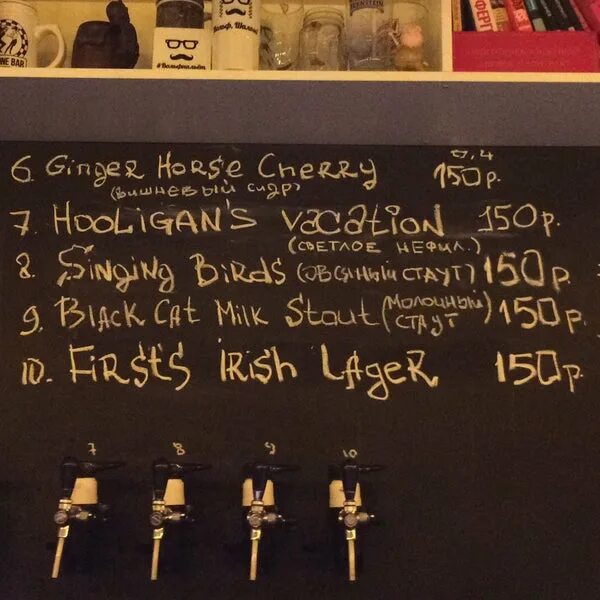 NE BAR
#Вольфпальот
ФЕРГ
6. GinGeR HoRse CheRRy 0,4 150р.
(вишневый сидр)
7. HOOLIGAN'S VacATION 150р.
(СВЕТЛОЕ НЕФИЛ.)
8. SinginG BiRDS (ОВСЯНЫЙ СТАУТ) 150р.
9. Black Cat Milk Stout (МОЛОЧНЫЙ СТАУТ) 150р.
10. FiRst'S iRish LAgeR 150р.
7 8 9 10